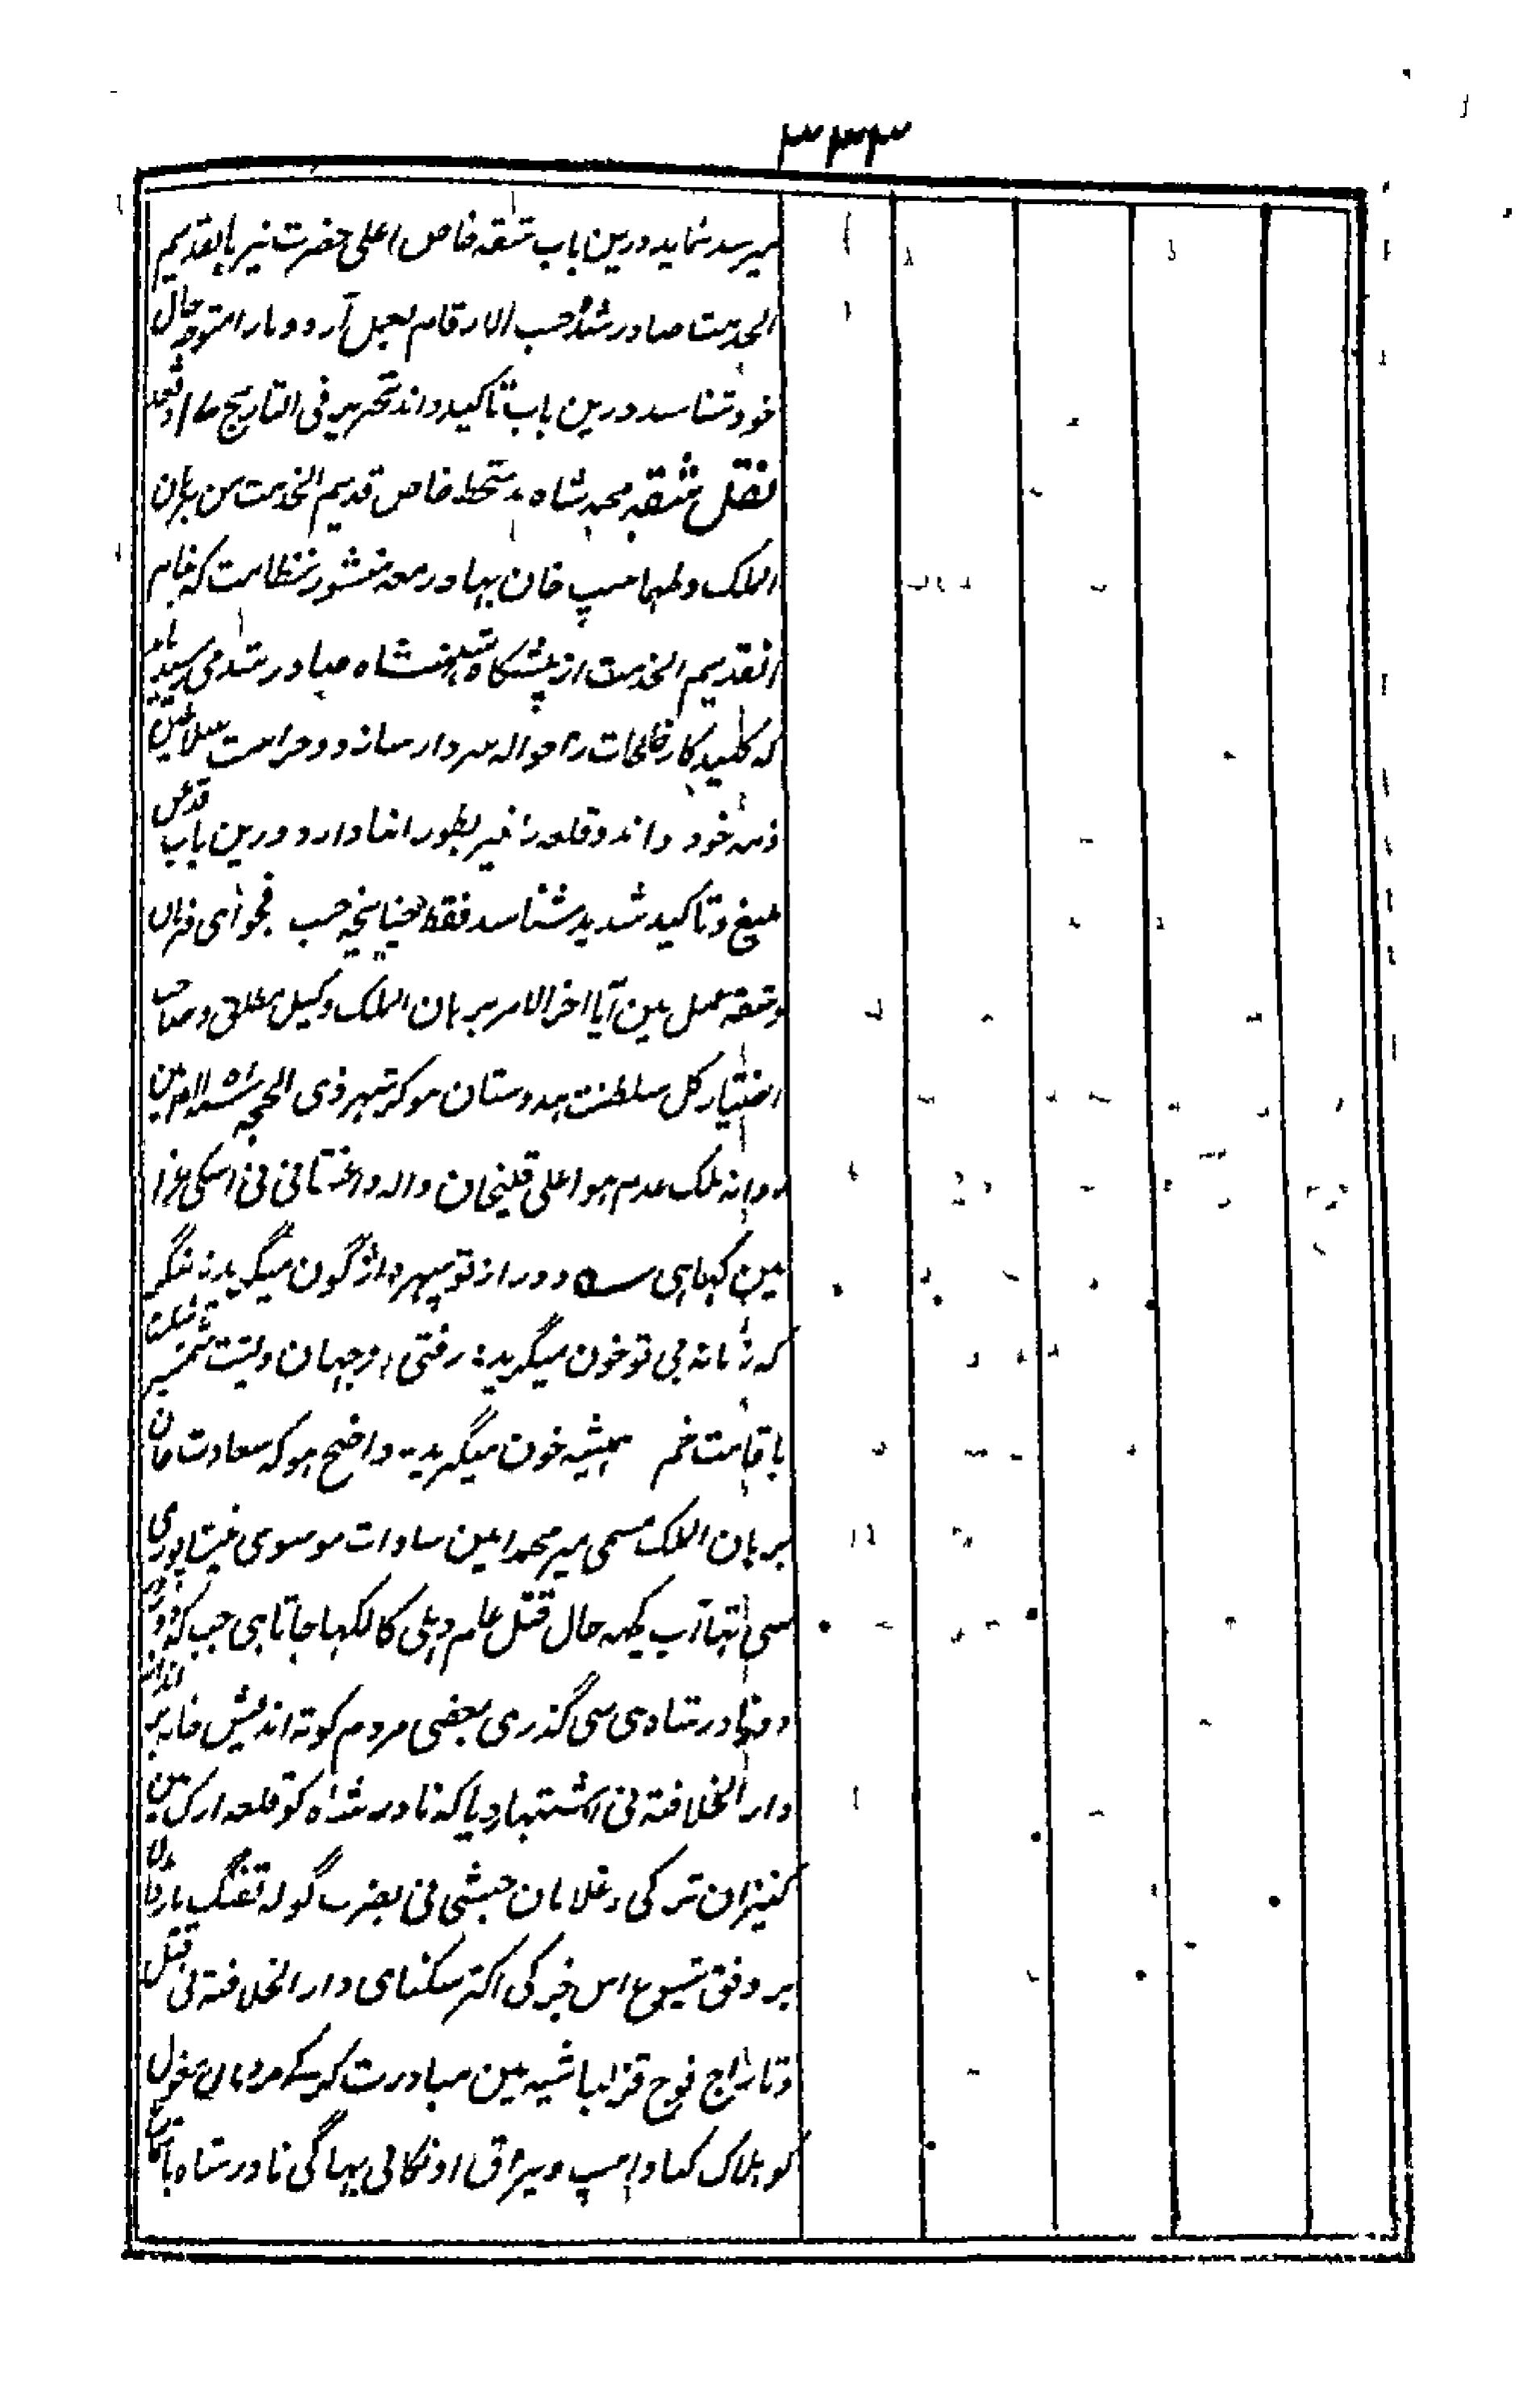 ۳۳۳
میرسد نماید درین باب شقه خاص اعلی حضرت نیز بانقدیم
الخدمت صادر شد حسب الارقام بعمل آرد و مارا متوجه حال
خود شناسد درین باب تاکید داند تحریر فی التاریخ
نقل شقه محمد شاه بدستخط خاص قدیم الخدمت من برهان
الملک و طهماسپ خان بهادر معه منشور نظامت که بنام
انقدیم الخدمت از پیشگاه شهنشاه صادر شد می رسد باید
که کلید کارخانجات را حواله سردار سازد و حراست سلاطین
ذمه خود داند و قلعه را نیز بطور انها دارد درین باب قدغن
بلیغ و تاکید شدید شناسد فقط چنانچه حسب فحوای فرمان
و شقه عمل مین آیا اخر الامر برهان الملک وکیل مطلق و صاحب
اختیار کل سلطنت هندوستان هوکر شهر ذی الحجه مین
روانه ملک عدم هوا علی قلیخان واله داغستانی نی اسکی عزا
مین کها هی ؎ دور از تو سپهر واژگون میگرید بنگر
که زمانه بی تو خون میگرید رفتی از جهان و پشت شمشیر شکست
با قامت خم همیشه خون میگرید واضح هو که سعادت خان
برهان الملک مسمی میر محمد امین سادات موسوی نیشاپوری
سی تها اب یهه حال قتل عام دهلی کا لکها جاتا هی جب که
ورود نادر شاه سی گذری بعضی مردم کوته اندیش خانه برانداز
دار الخلافه نی اشتهار دیا که نادر شاه کو قلعه ارک مین
کنیزان ترکی و غلامان حبشی نی بضرب گوله تفنگ مار ڈالا
بر وفق شیوع اس خبر کی اکثر سکنای دار الخلافه نی قتل
و تاراج فوج قزلباشیه مین مبادرت کرکے مردمان مغول
کو هلاک کیا و اسپ و یراق اونکا لی بهاگی نادر شاه